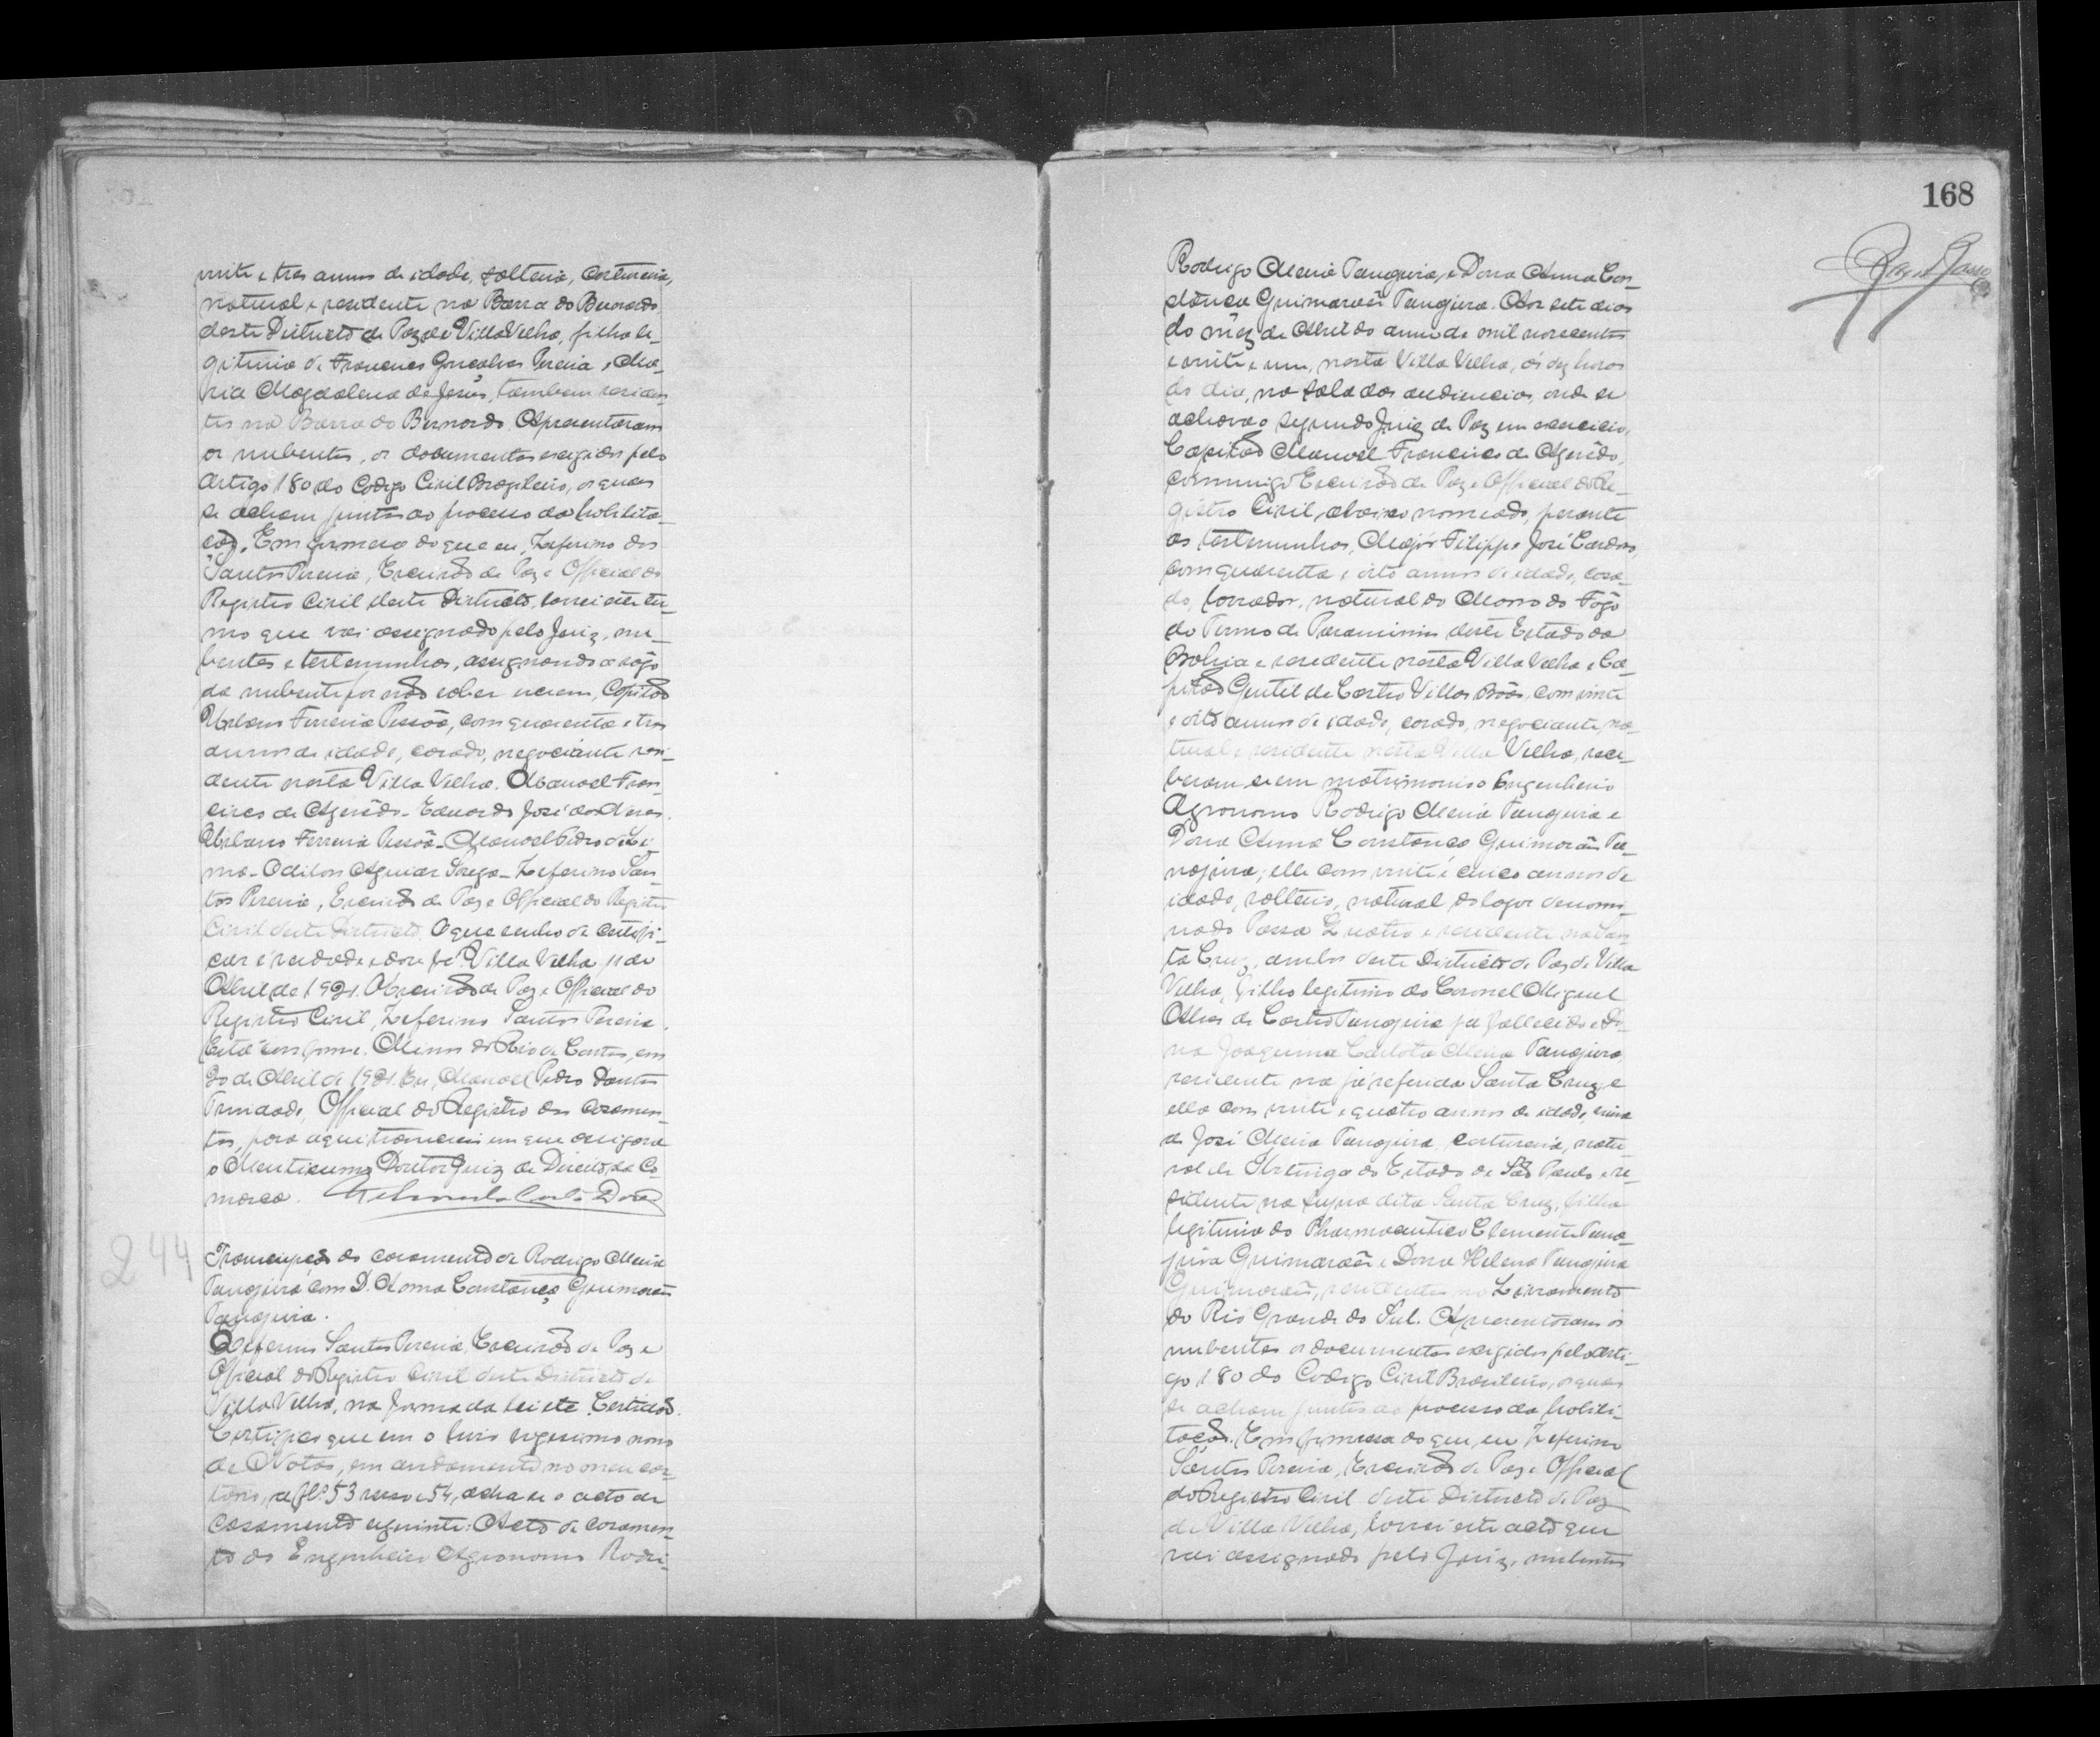 vinte e tres annos de idade, solteira, costureira,
natural e residente na Barra do Bernardo
deste Districto de Paz de Villa Velha, filha le-
gitima de Francisco Gonçalves Pereira e Ma-
ria Magdalena de Jesus, tambem residen-
tes na Barra do Bernardo. Apresentaram
os nubentes, os documentos exigidos pelo
artigo 180 do Codigo Civil Brazileiro, os quaes
se acham juntos ao processo da habilita-
ção. Em firmesa do que eu, Zeferino dos
Santos Pereira, Escrivão de Paz e Official do
Registro Civil deste Districto, lavrei este ter-
mo que vai assignado pelo Juiz, nu-
bentes e testemunhas, assignando a rôgo
da nubente por não saber escrever, Capitão
Urbano Ferreira Pessôa, com quarenta e tres
annos de idade, casado, negociante resi-
dente nesta Villa Velha. Manoel Fran-
cisco de Azevêdo. Eduardo José das Neves.
Urbano Ferreira Pessôa. Manoel Pedro de Li-
ma. Odilon Aguiar. Zeferino San-
tos Pereira, Escrivão de Paz e Official do Registro
Civil deste Districto. O que tenho de certifi-
car é verdade e dou fé. Villa Velha de
Abril de 1921. O Escrivão de Paz e Official do
Registro Civil, Zeferino Santos Pereira.
Está conforme. Minas do Rio de Contas, em
20 de Abril de 1921. Eu, Manoel Pedro Dantes
Trindade, Official do Registro dos Casamen-
tos, para aqui transcrevi em que assignará
o Meritissimo Doutor Juiz de Direito da Co-
marca.
244
Transcripção do casamento de Rodrigo Meira
Tanajura com D. Anna Constança Guimarães
Tanajura.
Zeferino Santos Pereira, Escrivão de Paz e
Official do Registro Civil deste Districto de
Villa Velha, na forma da lei etc. Certidão.
Certifico que em o livro vigesimo nono
de Notas, em andamento no meu car-
torio, a fls. 53 verso e 54, acha-se o acto de
casamento seguinte: Acto de casamen-
to do Engenheiro Agronomo Rodri-
168
Rodrigo Meira Tanajura, e Dona Anna Con-
stança Guimarães Tanajura. Aos sete dias
do mêz de Abril do anno de mil novecentos
e vinte e um, nesta Villa Velha, ás dez horas
do dia, na sala das audiencias, onde se
achava o segundo Juiz de Paz em exercicio,
Capitão Manoel Francisco de Azevêdo,
commigo Escrivão de Paz e Official do Re-
gistro Civil, abaixo nomeado, perante
as testemunhas, Major Filippe José Cardoso,
com quarenta e oito annos de idade, casa-
do, lavrador, natural do Morro do Fogo
do Termo de Paramirim deste Estado da
Bahia e residente nesta Villa Velha e Ca-
pitão Gentil de Castro Villas Bôas, com vinte
e oito annos de idade, casado, negociante, na-
tural e residente nesta Villa Velha, rece-
beram-se em matrimonio o Engenheiro
Agronomo Rodrigo Meira Tanajura e
Dona Anna Constança Guimarães Ta-
najura; elle com vinte e cinco annos de
idade, solteiro, natural do logar denomi-
nado Passa Quatro e residente na San-
ta Cruz, ambos deste Districto de Paz de Villa
Velha, filho legitimo do Coronel Miguel
Alves de Castro Tanajura já fallecido e Do-
na Joaquina Carlota Meira Tanajura,
residente na já referida Santa Cruz, e
ella com vinte e quatro annos de idade, viuva
de José Meira Tanajura, costureira, natu-
ral de Ibitinga do Estado de São Paulo e re-
sidente na supra dita Santa Cruz, filha
legitima do Pharmaceutico Clemente Tana-
jura Guimarães e Dona Helena Tanajura
Guimarães, residentes no Livramento
do Rio Grande do Sul. Apresentaram os
nubentes os documentos exigidos pelo arti-
go 180 do Codigo Civil Brasileiro, os quaes
se acham juntos ao processo da habili-
tação. Em firmesa do que, eu Zeferino
Santos Pereira, Escrivão de Paz e Official
do Registro Civil deste Districto de Paz
de Villa Velha, lavrei este acto que
vai assignado pelo Juiz, nubentes